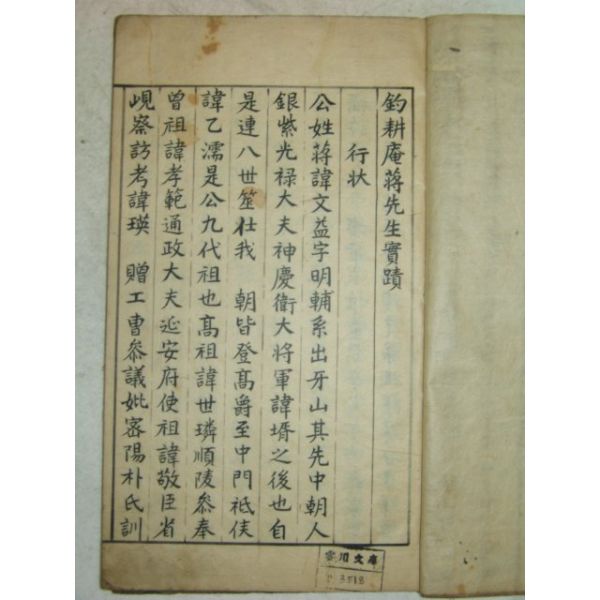 釣耕庵蔣先生實蹟
行状
公姓蔣諱文益字明輔系出牙山其先中朝人
銀紫光禄大夫神慶衛大将軍諱壻之後也自
是連八世筮壮我 朝皆登髙爵至中門祗侯
諱乙濡是公九代祖也髙祖諱世璘順陵叅奉
曾祖諱孝範通政大夫延安府使祖諱敬臣省
峴察訪考諱瑛 贈工曹叅議妣密陽朴氏訓
文庫